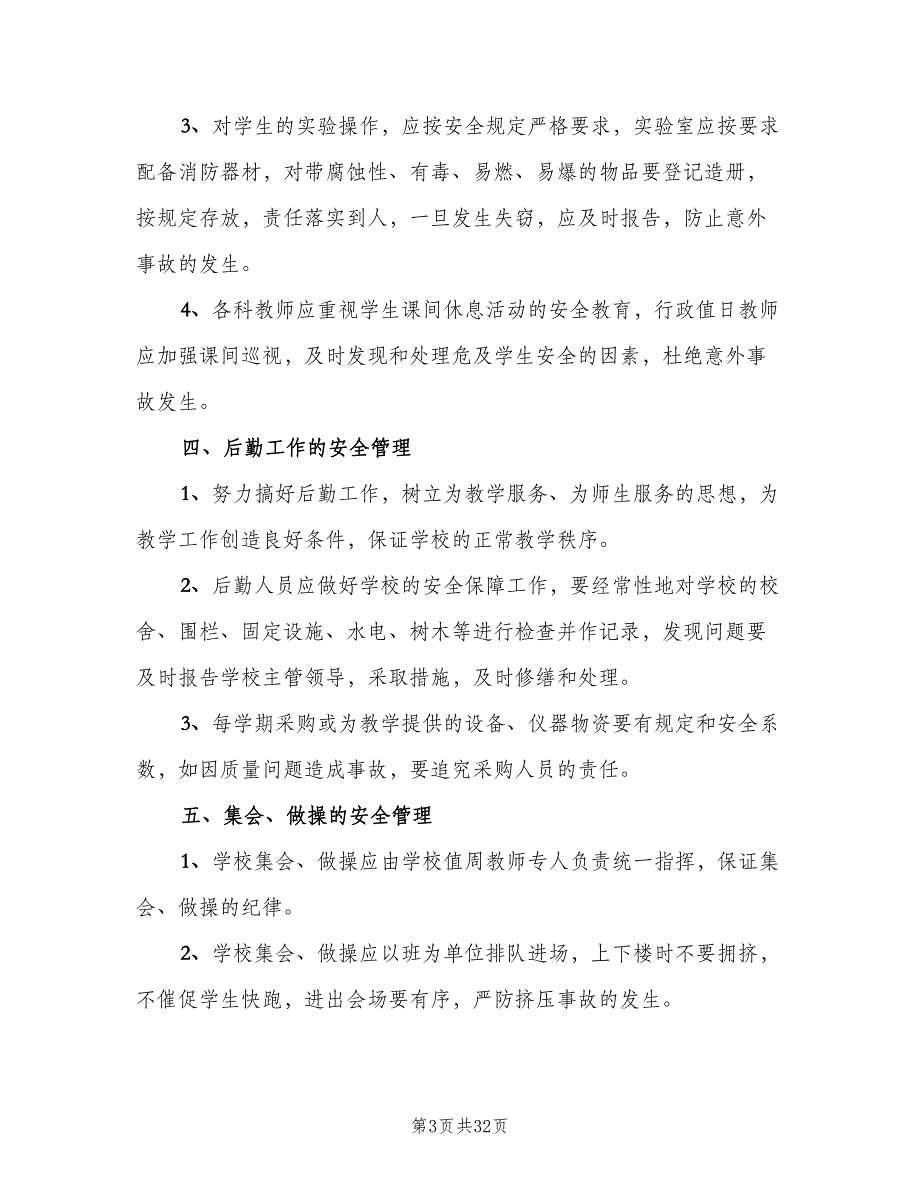 3、对学生的实验操作，应按安全规定严格要求，实验室应按要求
配备消防器材，对带腐蚀性、有毒、易燃、易爆的物品要登记造册，
按规定存放，责任落实到人，一旦发生失窃，应及时报告，防止意外
事故的发生。
4、各科教师应重视学生课间休息活动的安全教育，行政值日教师
应加强课间巡视，及时发现和处理危及学生安全的因素，杜绝意外事
故发生。
四、后勤工作的安全管理
1、努力搞好后勤工作，树立为教学服务、为师生服务的思想，为
教学工作创造良好条件，保证学校的正常教学秩序。
2、后勤人员应做好学校的安全保障工作，要经常性地对学校的校
舍、围栏、固定设施、水电、树木等进行检查并作记录，发现问题要
及时报告学校主管领导，采取措施，及时修缮和处理。
3、每学期采购或为教学提供的设备、仪器物资要有规定和安全系
数，如因质量问题造成事故，要追究采购人员的责任。
五、集会、做操的安全管理
1、学校集会、做操应由学校值周教师专人负责统一指挥，保证集
会、做操的纪律。
2、学校集会、做操应以班为单位排队进场，上下楼时不要拥挤，
不催促学生快跑，进出会场要有序，严防挤压事故的发生。
第3页共32页